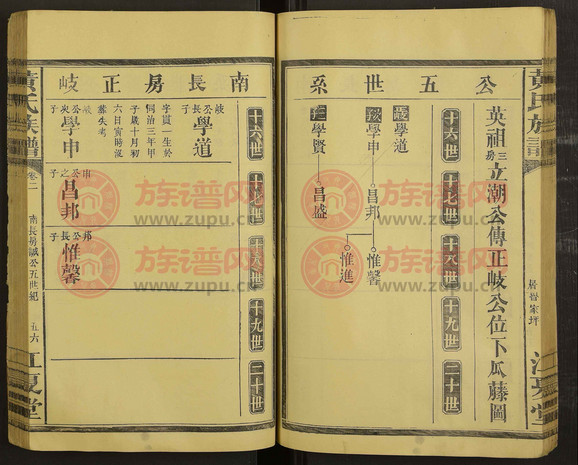 公五世系
英祖三房立潮公傳正岐公位下瓜藤圖
十六世
十七世
十八世
十九世
二十世
學道
學申
昌邦
惟馨
惟進
學賢
昌盛
黃氏族譜
居譻家坪
江夏堂
南長房正岐
十六世
十七世
十八世
十九世
二十世
岐公長子
學道
字貫一生於
同治三年甲
子歲十月初
六日寅時沒
葬失考
岐公次子
學申
申公之子
昌邦
邦公長子
惟馨
黃氏族譜
卷二
南長房誠公五世紀
五六
江夏堂
族谱网
www.zupu.cn
族谱网
www.zupu.cn
族谱网
www.zupu.cn
族谱网
www.zupu.cn